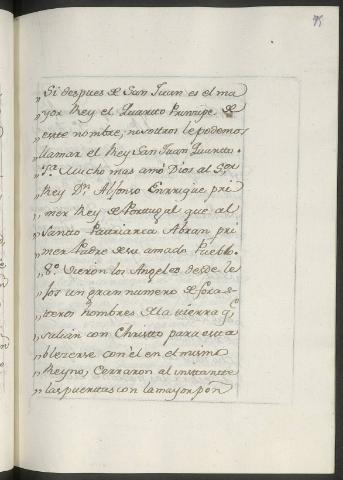 75
„ Si despues de San Juan es el ma
„ yor Rey el Quarto Principe de
„ este nombre; nosotros le podemos
„ llamar el Rey San Juan Quinto.
„ 7ª Mucho mas amó Dios al S.or
„ Rey D.n Alfonso Enrrique pri
„ mer Rey de Portugal que al
„ Santo Patriarca Abran pri
„ mer Padre de su amado Pueblo.
„ 8ª Vieron los Angeles desde le
„ jos un gran numero de foras-
„ teros hombres de la tierra q.e
„ subian con Christto para esta
„ blezerse con el en el mismo
„ Reyno, cerraron al instantte
„ las puertas con la mayor